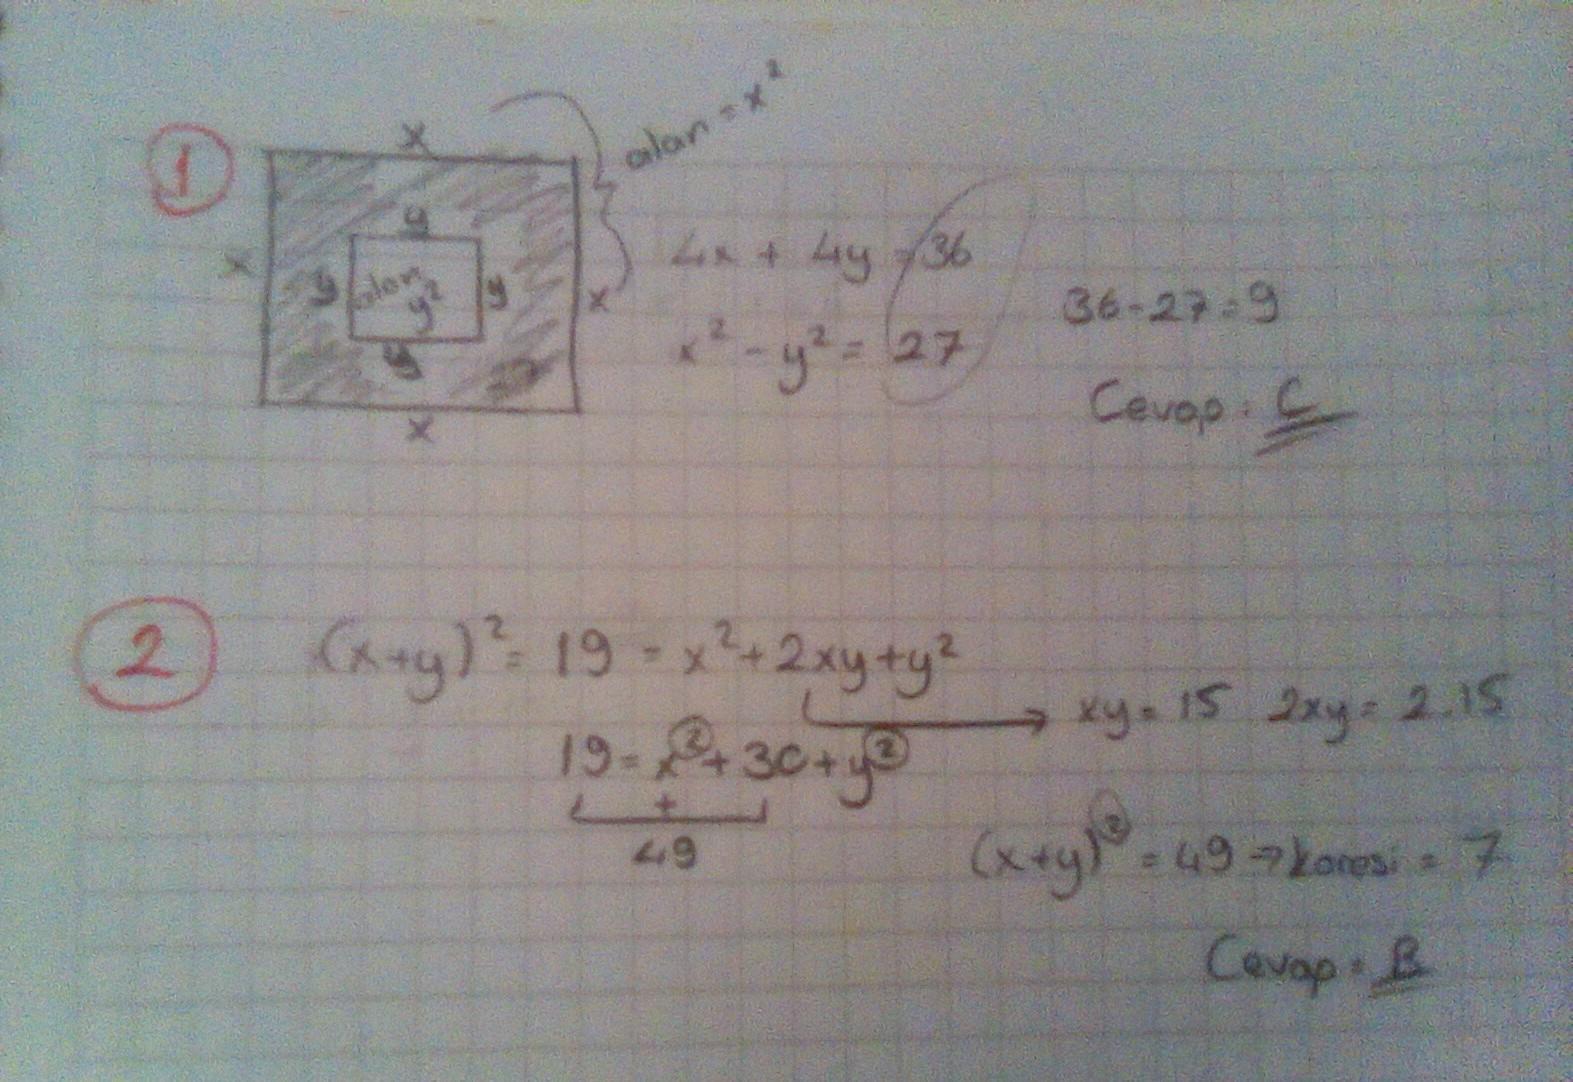 1
x
alan = x²
y
x
y
alan
y²
y
x
y
x
4x + 4y = 36
x² - y² = 27
36-27=9
Cevap : C
2
(x+y)² = 19 = x²+2xy+y²
xy = 15 2xy = 2.15
19 = x²+30+y²
+
49
(x+y)² = 49 → karesi = 7
Cevap = B